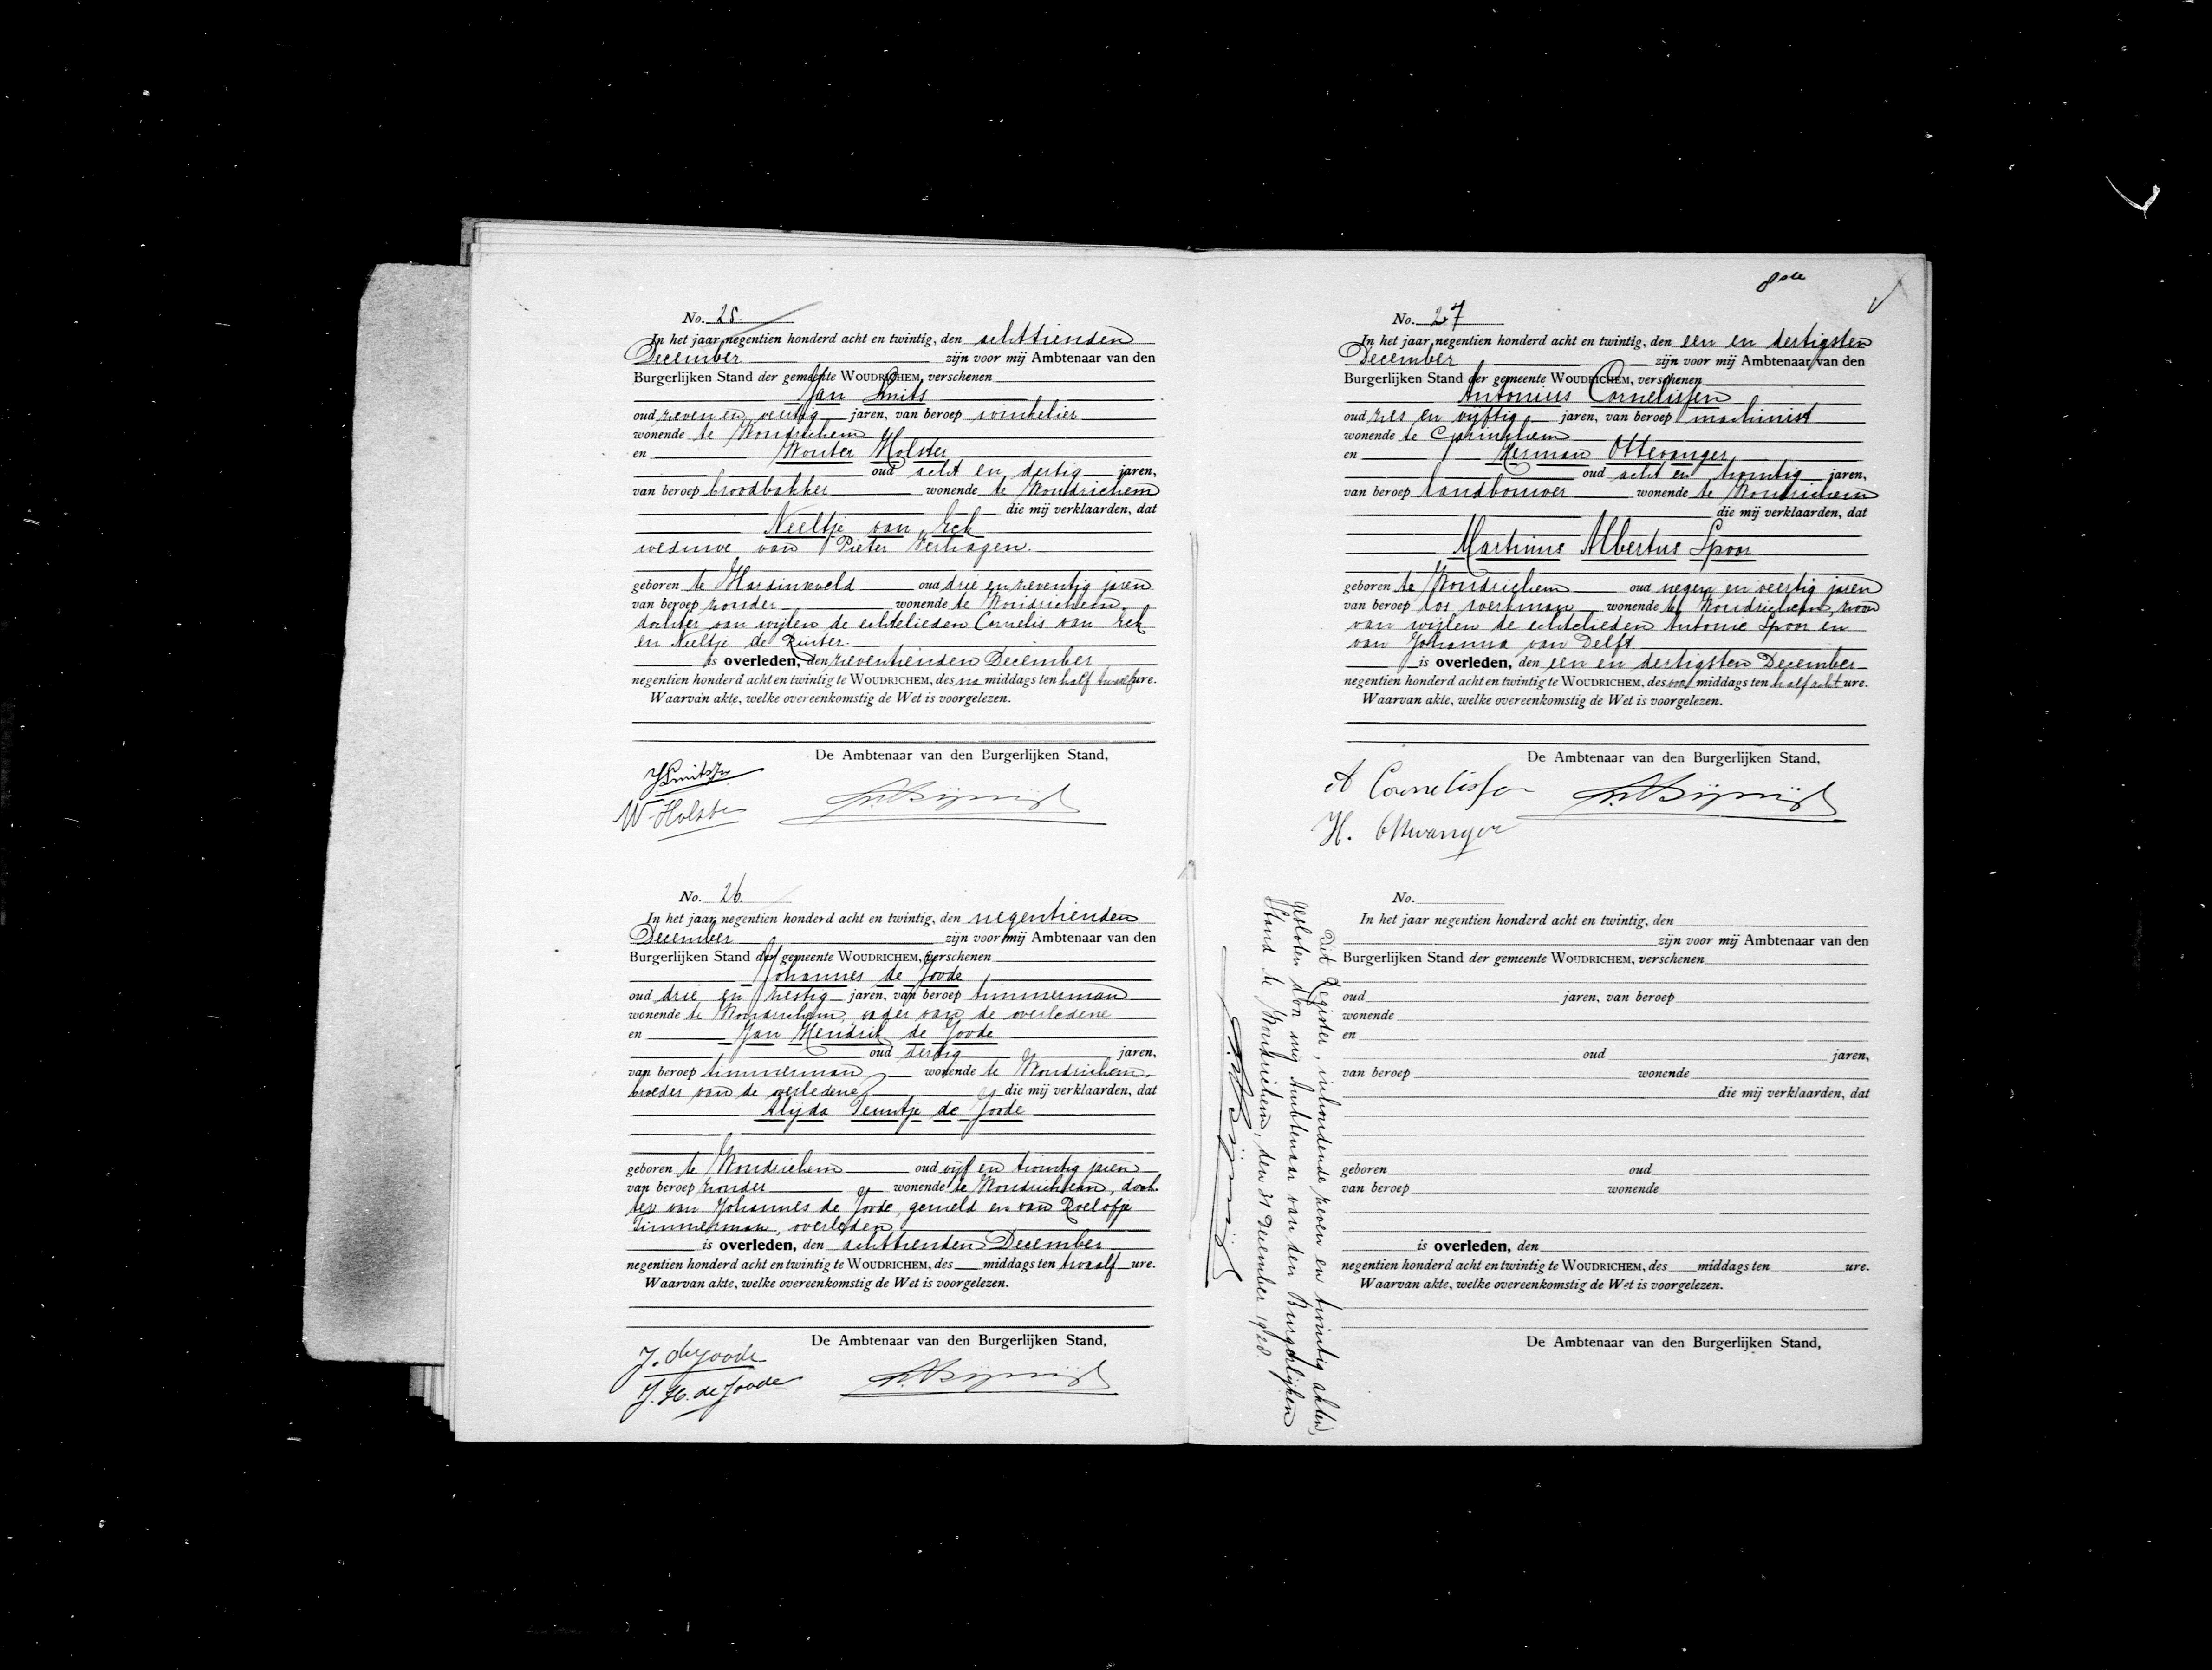 No. 25.
In het jaar negentien honderd acht en twintig, den achttienden
December zijn voor mij Ambtenaar van den
Burgerlijken Stand der gemeente WOUDRICHEM, verschenen
Jan Smits
oud zeven en veertig jaren, van beroep winkelier
wonende te Woudrichem
en Wouter Holster
oud acht en dertig jaren,
van beroep broodbakker wonende te Woudrichem
die mij verklaarden, dat
Neeltje van Eck
weduwe van Pieter Verhagen.
geboren te Hardinxveld oud drie en zeventig jaren
van beroep zonder wonende te Woudrichem,
dochter van wijlen de echtelieden Cornelis van Eck
en Neeltje de Ruiter.
is overleden, den zeventienden December
negentien honderd acht en twintig te WOUDRICHEM, des na middags ten half twaalf ure.
Waarvan akte, welke overeenkomstig de Wet is voorgelezen.
De Ambtenaar van den Burgerlijken Stand,
J Smits Jz
W Holster
No. 26.
In het jaar negentien honderd acht en twintig, den negentienden
December zijn voor mij Ambtenaar van den
Burgerlijken Stand der gemeente WOUDRICHEM, verschenen
Johannes de Joode
oud drie en zestig jaren, van beroep timmerman
wonende te Woudrichem, vader van de overledene
en Jan Hendrik de Joode
oud dertig jaren,
van beroep timmerman wonende te Woudrichem,
broeder van de overledene die mij verklaarden, dat
Alijda Teuntje de Joode
geboren te Woudrichem oud vijf en twintig jaren
van beroep zonder wonende te Woudrichem, doch-
ter van Johannes de Joode, gemeld en van Roelofje
Timmerman, overleden
is overleden, den achttienden December
negentien honderd acht en twintig te WOUDRICHEM, des middags ten twaalf ure.
Waarvan akte, welke overeenkomstig de Wet is voorgelezen.
De Ambtenaar van den Burgerlijken Stand,
J. de Joode
J. H. de Joode
8ste
No. 27
In het jaar negentien honderd acht en twintig, den een en dertigsten
December zijn voor mij Ambtenaar van den
Burgerlijken Stand der gemeente WOUDRICHEM, verschenen
Antonius Cornelissen
oud zes en vijftig jaren, van beroep machinist
wonende te Gorinchem
en Herman Ottevanger
oud acht en twintig jaren,
van beroep landbouwer wonende te Woudrichem
die mij verklaarden, dat
Martinus Albertus Spoor
geboren te Woudrichem oud negen en veertig jaren
van beroep los werkman wonende te Woudrichem, zoon
van wijlen de echtelieden Antonie Spoor en
van Johanna van Delft
is overleden, den een en dertigsten December
negentien honderd acht en twintig te WOUDRICHEM, des voor middags ten half acht ure.
Waarvan akte, welke overeenkomstig de Wet is voorgelezen.
De Ambtenaar van den Burgerlijken Stand,
A Cornelissen
H. Ottevanger
No.
In het jaar negentien honderd acht en twintig, den
zijn voor mij Ambtenaar van den
Burgerlijken Stand der gemeente WOUDRICHEM, verschenen
oud jaren, van beroep
wonende
en
oud jaren,
van beroep wonende
die mij verklaarden, dat
geboren oud
van beroep wonende
is overleden, den
negentien honderd acht en twintig te WOUDRICHEM, des middags ten ure.
Waarvan akte, welke overeenkomstig de Wet is voorgelezen.
De Ambtenaar van den Burgerlijken Stand,
Dit Register, inhoudende zeven en twintig akten,
gesloten door mij Ambtenaar van den Burgerlijken
Stand te Woudrichem, den 31 December 1928.